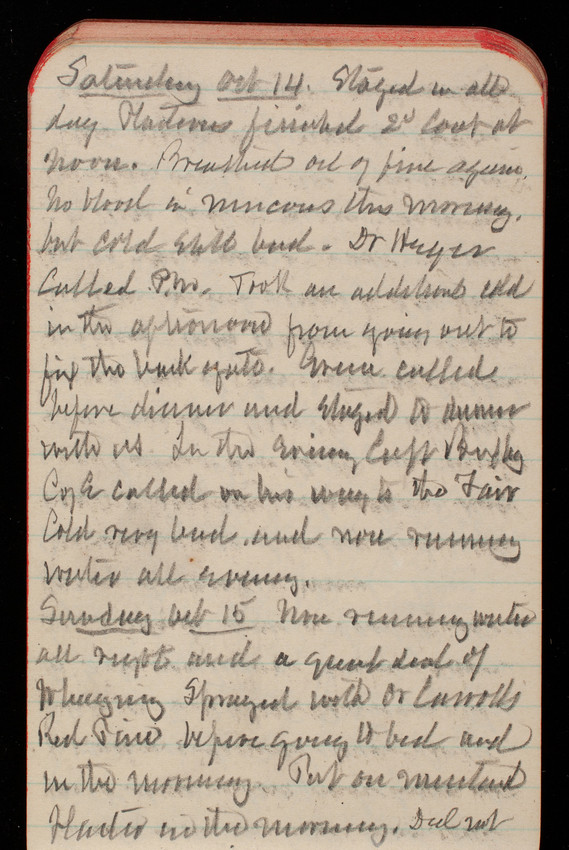 Saturday Oct 14. Stayed in all
day. Plasterers finished 2d Coat at
noon. Breathed oil of pine again.
No blood in mucous this morning.
but cold still bad. Dr
Called P.M. Took an additional cold
in the afternoon from going out to
fix the back gate. Greene called
before dinner and stayed to dinner
with us. In the evening Capt Bixby
Co E called on his way to the Fair
Cold very bad and nose running
water all evening.
Sunday Oct 15 Nose running water
all night and a great deal of
Wheezing Sprayed with Dr Carrolls
Red Pine before going to bed and
in the morning. Put on mustard
Plaster in the morning. Did not